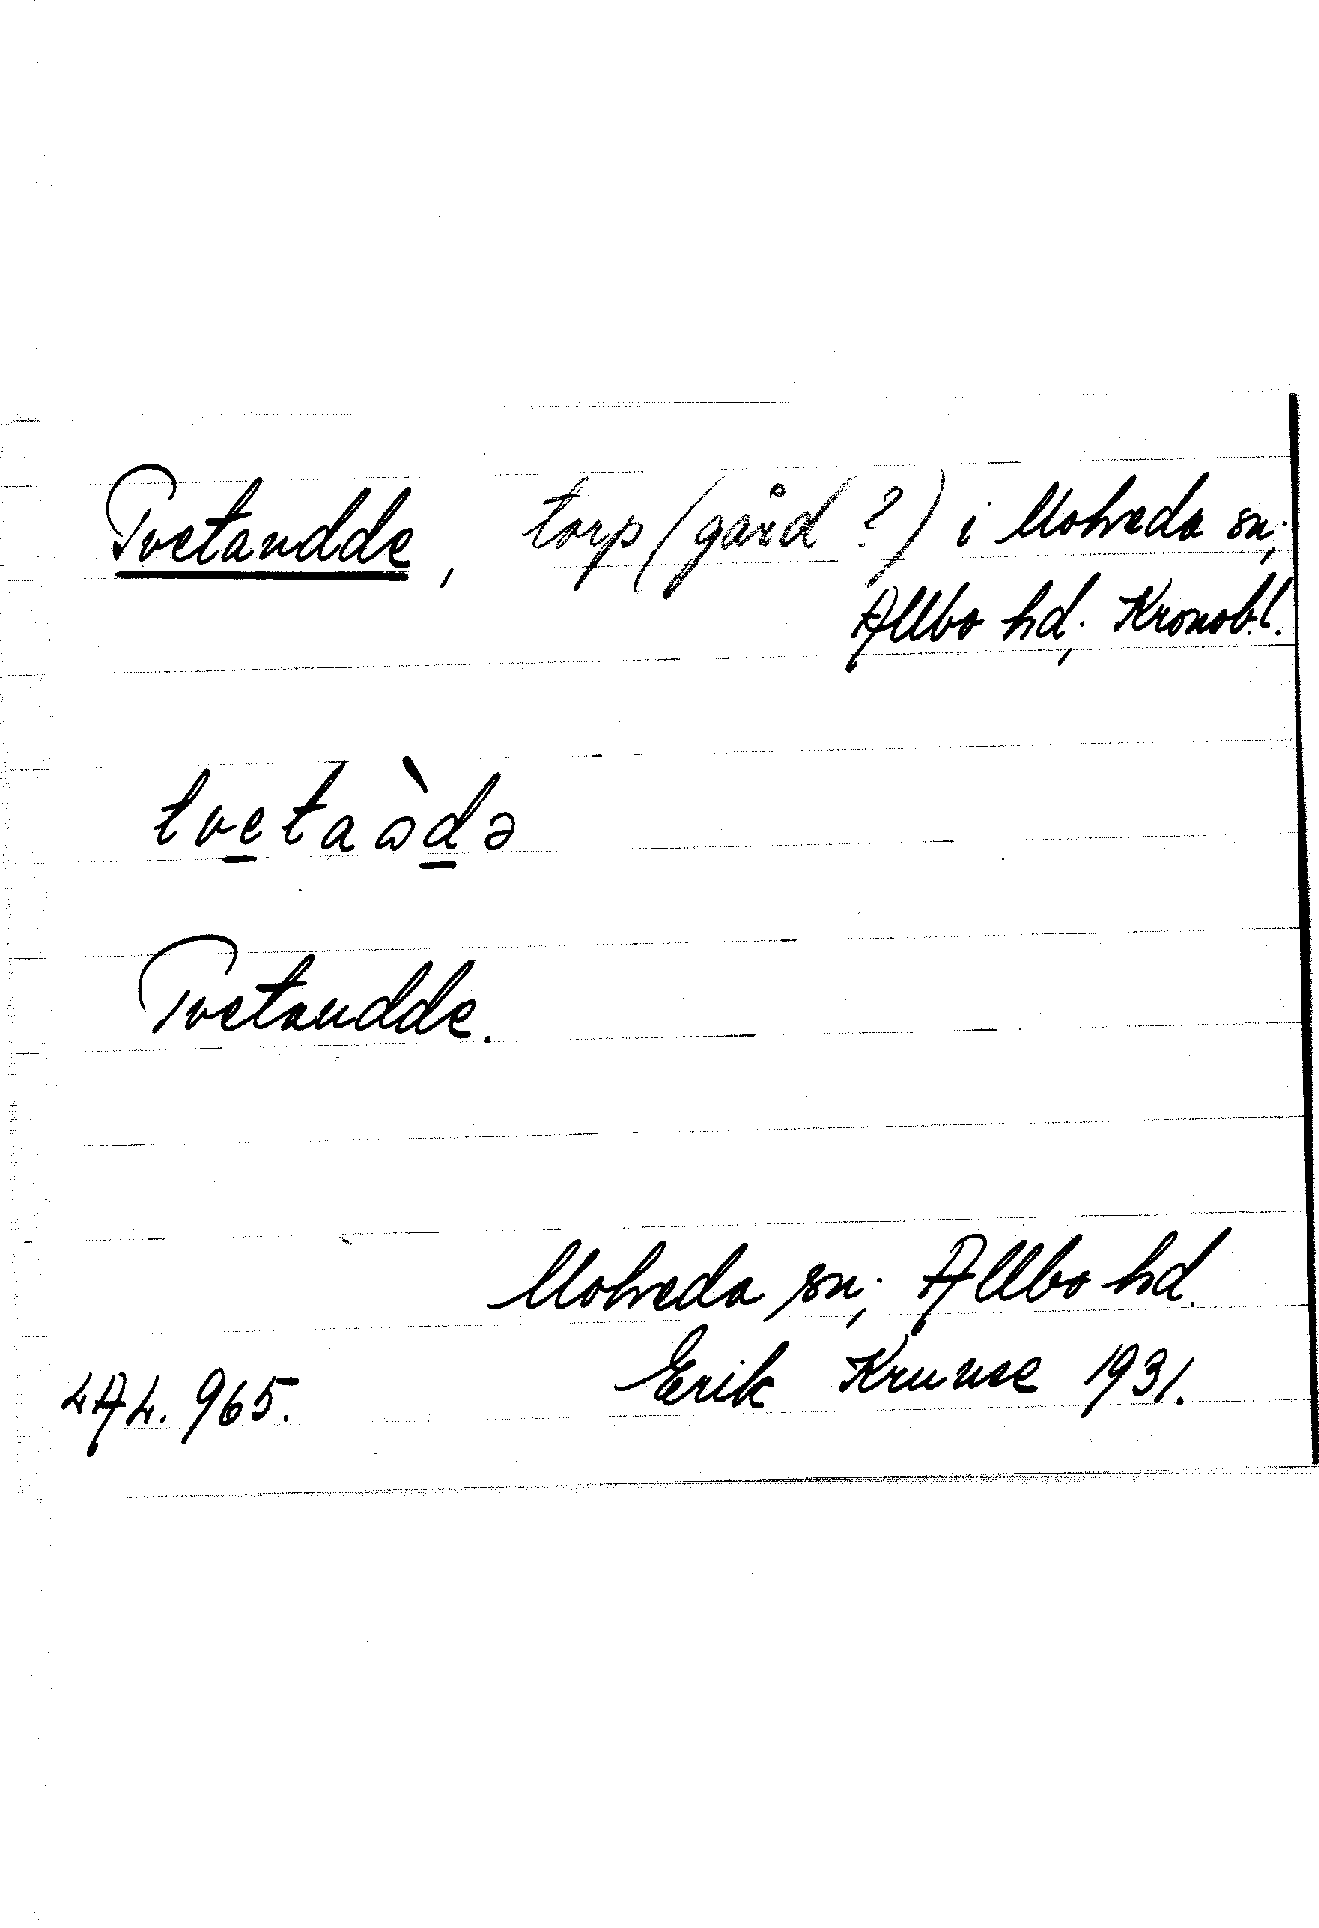 Tvetaudde, torp (gård?) i Moheda sn.,
Allbo hd., Kronob.l.
tvetaùdə
Tvetaudde.
Moheda sn., Allbo hd.
LAL. 965.
Erik Kruuse 1931.